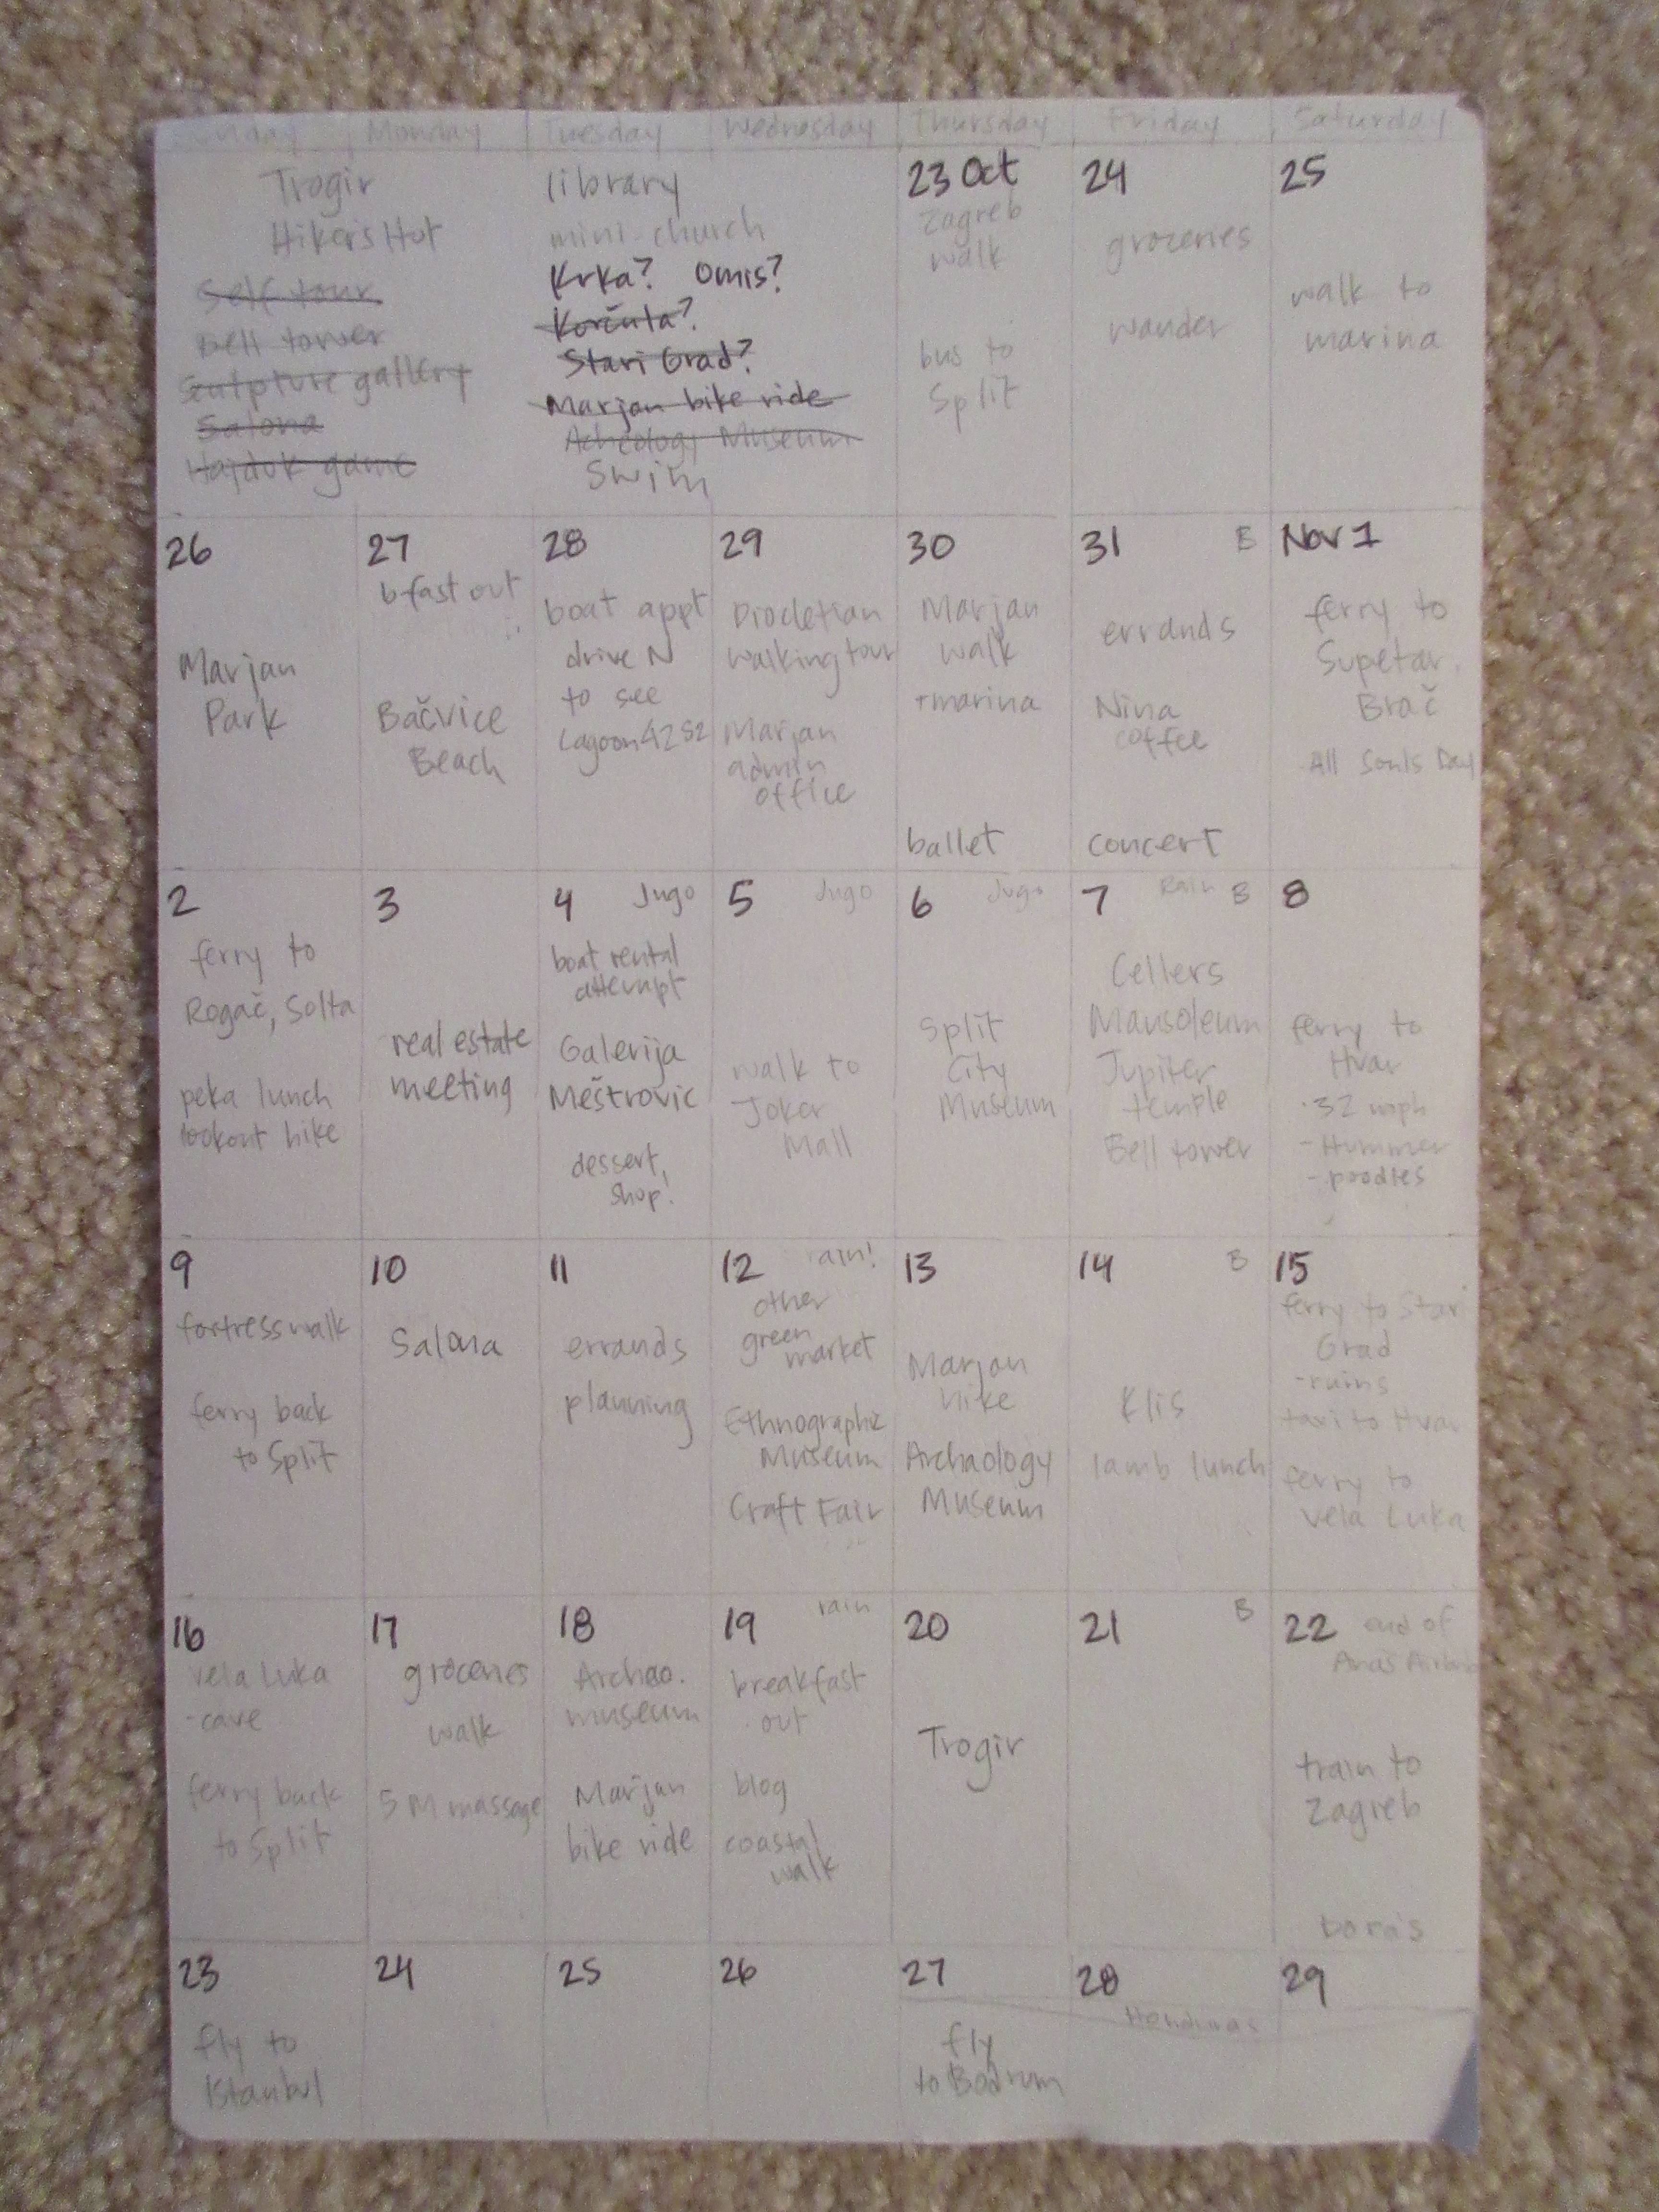 Monday Tuesday Wednesday Thursday Friday Saturday
Trogir
Hikers Hut
Self tour
Bell tower
Sculpture gallery
Salona
Hajduk game
library
mini-church
Krka? Omis?
Korčula?
Stari Grad?
Marjan bike ride
Acheology Museum
Swim
23 Oct
Zagreb
walk
bus to
Split
24
groceries
wander
25
walk to
marina
26
Marjan
Park
27
bfast out
Bačvice
Beach
28
boat appt
drive N
to see
Lagoon 42 S2
29
Diocletian
walking tour
Marjan
admin
office
30
Marjan
walk
+marina
ballet
31
errands
Nina
coffee
concert
Nov 1
ferry to
Supetar,
Brač
All Souls Day
2
ferry to
Rogač, Solta
peka lunch
lookout hike
3
real estate
meeting
4 Jugo
boat rental
attempt
Galerija
Meštrovic
dessert,
shop!
5 Jugo
walk to
Joker
Mall
6 Jugo
Split
City
Museum
7 Rain B
Cellers
Mausoleum
Jupiter
temple
Bell tower
8
ferry to
Hvar
-32 mph
-Hummer
-poodles
9
fortress walk
ferry back
to Split
10
Salona
11
errands
planning
12 rain!
other
green
market
Ethnographic
Museum
Craft Fair
13
Marjan
hike
Archaology
Museum
14 B
Klis
lamb lunch
15
ferry to Stari
Grad
-ruins
taxi to Hvar
ferry to
Vela Luka
16
Vela Luka
-cave
ferry back
to Split
17
groceries
walk
5 M massage
18
Archao.
museum
Marjan
bike ride
19 rain
breakfast
out
blog
coastal
walk
20
Trogir
21 B
22 end of
train to
Zagreb
23
fly to
Istanbul
24
25
26
27
fly
to Bodrum
28
Honduras
29